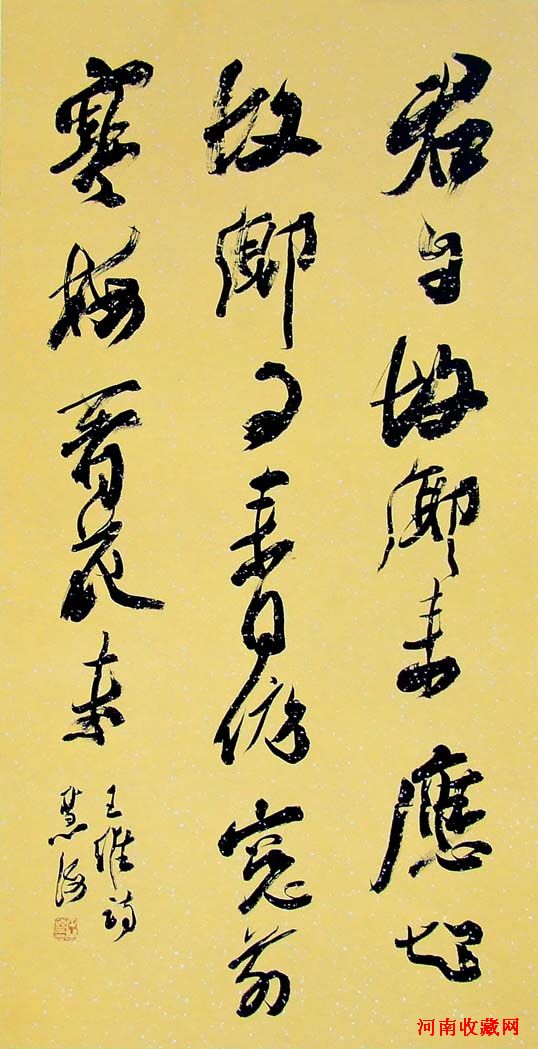 君自故鄉来應知
故鄉事来日綺窓前
寒梅着花未
王維詩
河南收藏网